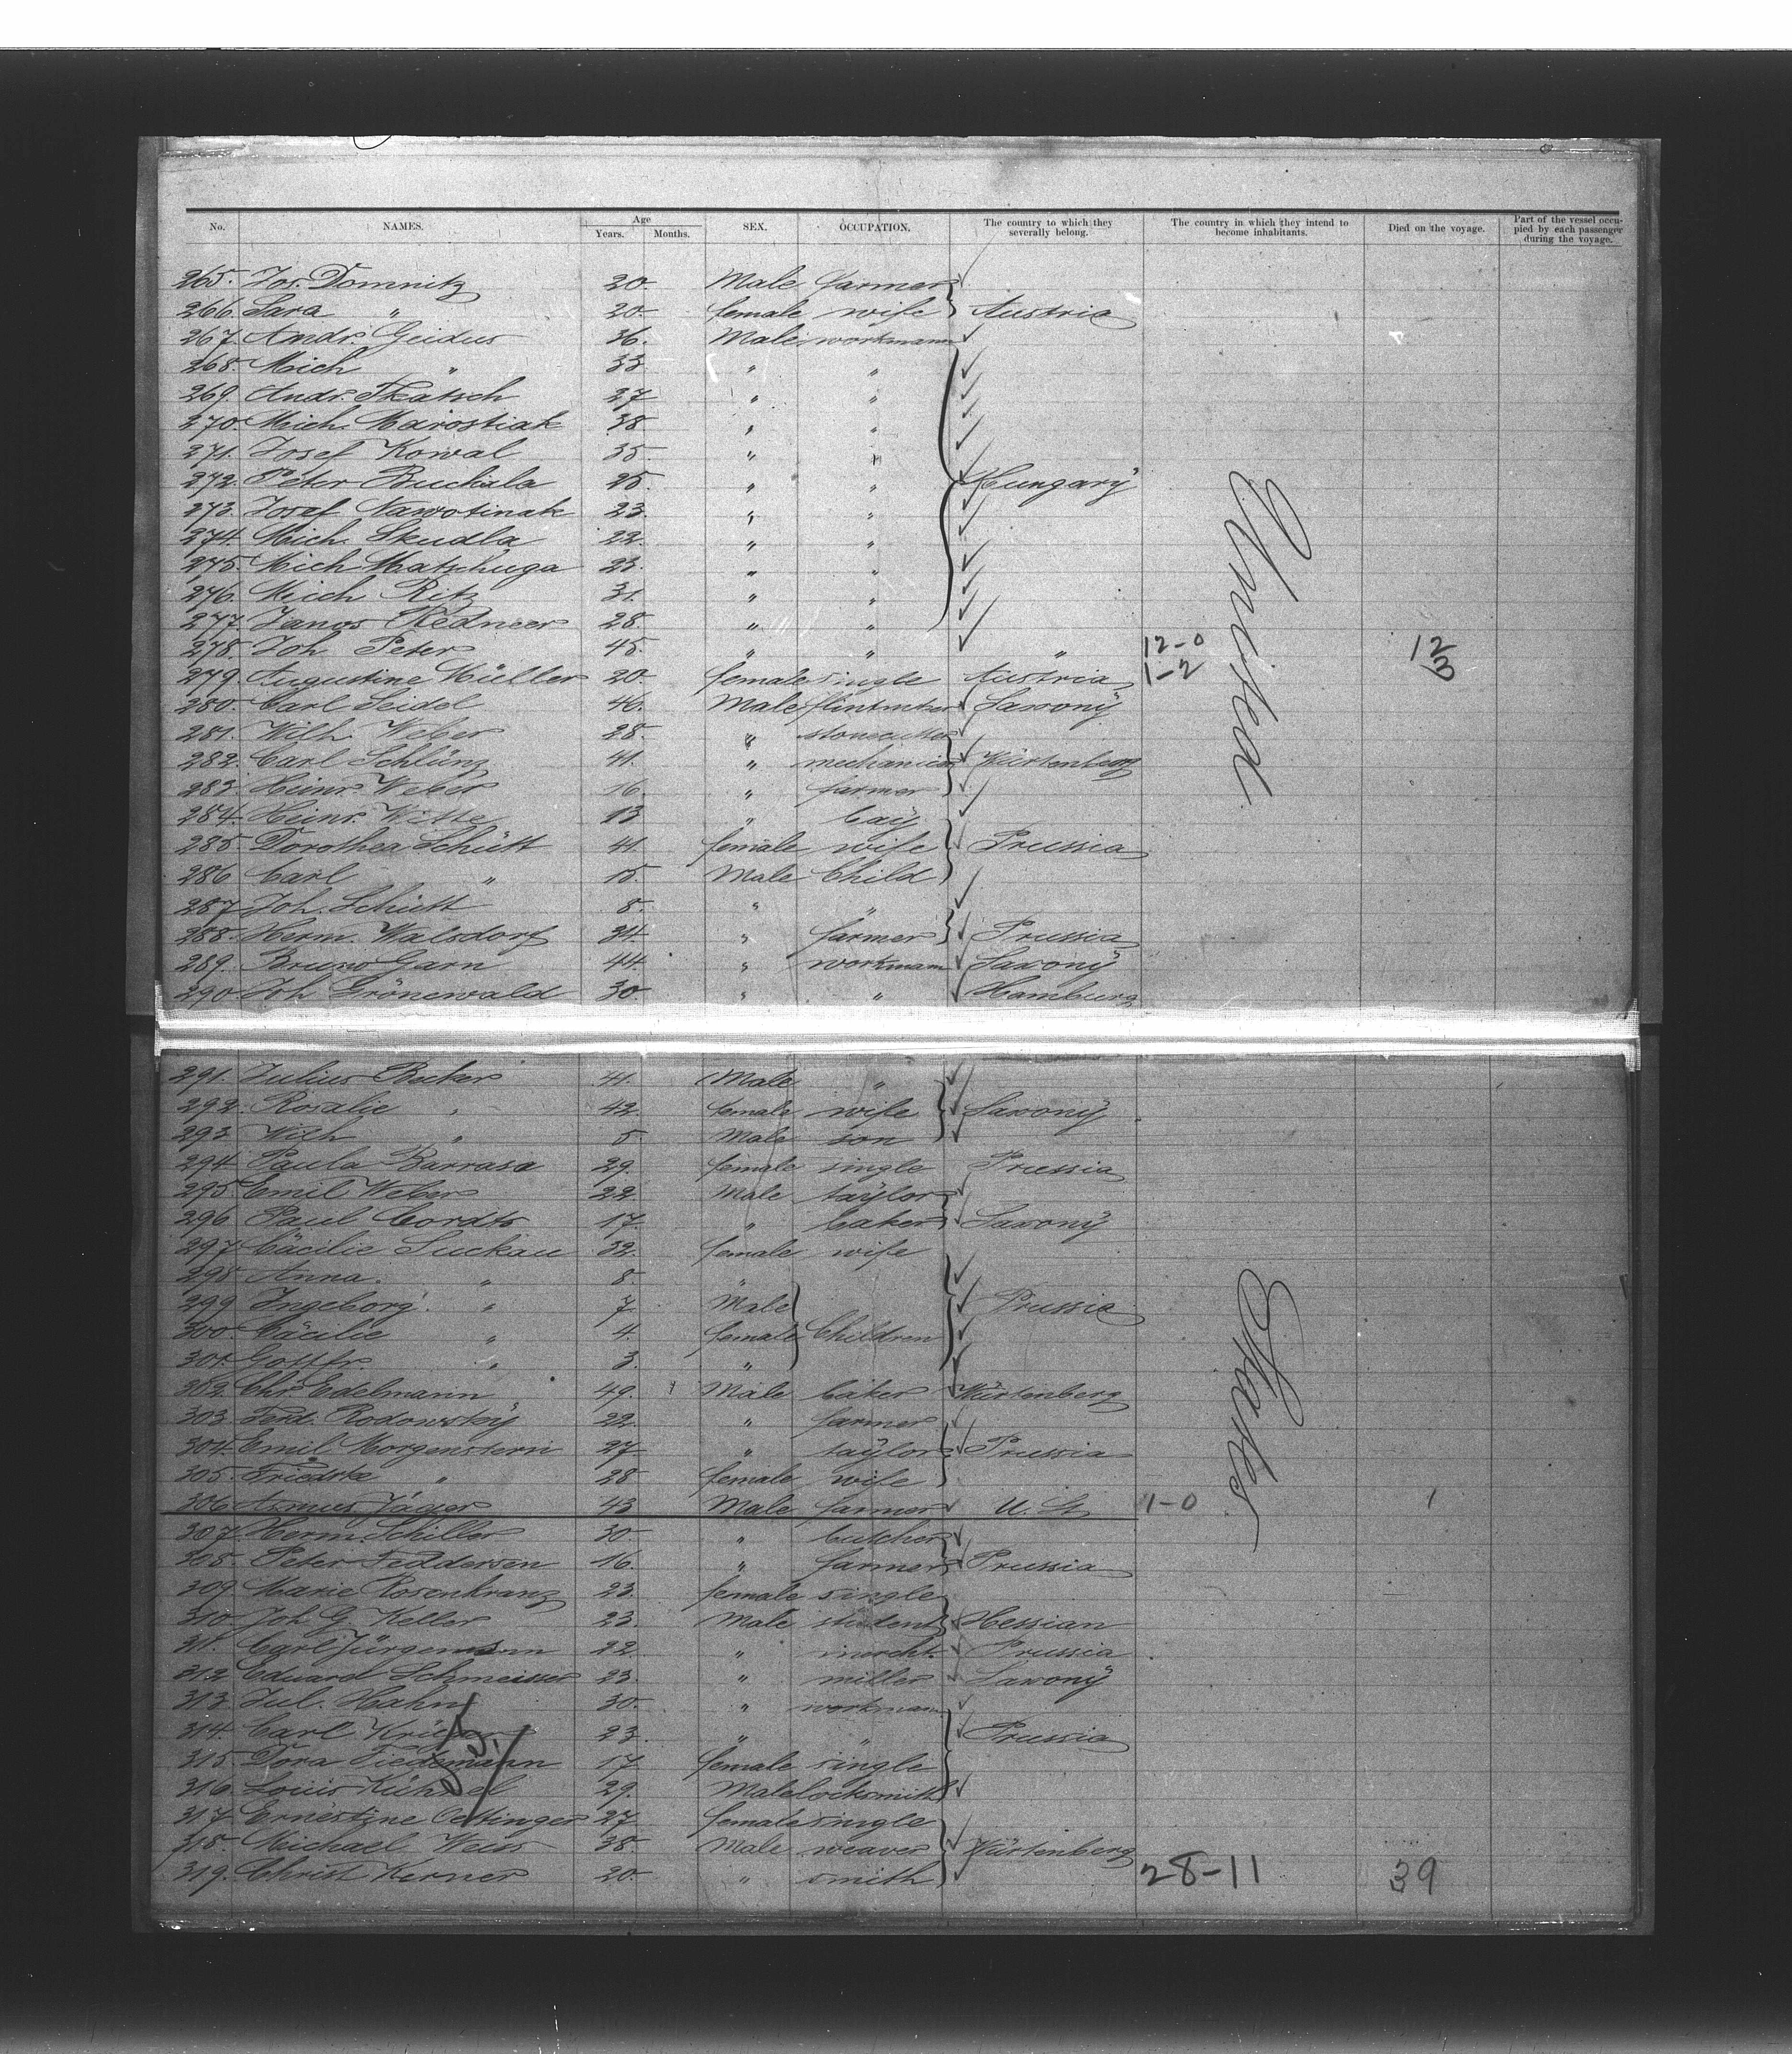 No. NAMES. Age Years. Months. SEX. OCCUPATION. The country to which they severally belong. The country in which they intend to become inhabitants. Died on the voyage. Part of the vessel occupied by each passenger during the voyage.
265. Jos. Domnitz 20. Male farmer
266. Sara " 20. female wife Austria
267. Andr. Geidus 36. Male workmann
268. Mich " 33 " "
269. Andr. Tkatsch 27 " "
270. Mich. Mairostiak 38 " "
271. Josef Kowal 35. " "
272. Peter Buckala 25. " " Hungary
273. Josef Nawotinak 23. " "
274. Mich. Skudla 22. " "
275. Mich Matschuga 23. " "
276. Mich Ritz 31. " "
277. Janos Kedneer 28. " "
278. Joh Peter 45. " " " 12-0 12
279. Augustine Müller 20. female single Austria 1-2 3
280. Carl Seidel 46. Male Saxony
281. Wilh. Weber 28. " stonecutter
282. Carl Schlünz 41. " mechanics Würtenberg
283. Heinr. Weber 16. " farmer
284. Heinr. Witte 13 " boy
285. Dorothea Schütt 41. female wife Prussia
286 Carl " 15. Male Child
287. Joh. Schütt 8. " "
288. Herm. Walsdorf 34. " farmer Prussia
289. Bruno Garn 44. " workmann Saxony
290. Joh Grönewald 30. " " Hamburg
United
291. Julius Becker 41. Male "
292. Rosalie " 42. female wife Saxony
293 Wilh " 5. Male son
294 Paula Barrasa 29. female single Prussia
295 Emil Weber 22. Male taylor
296 Paul Cordts 17. " baker Saxony
297 Cäcilie Suckau 32. female wife
298 Anna. " 8. "
299 Ingeborg. " 7. Male Prussia
300. Cäcilie " 4. female Children
301. Gottfr. " 3. "
302. Chr. Edelmann 49. Male baker Würtenberg
303. Ferd. Rodowsky 22. " farmer
304. Emil Morgenstern 27. " taylor Prussia
305. " 28 female wife
306 Asmus Jäger 43 Male farmer U. St. 1-0 1
307. Herm. Schiller 30 " butcher
308. Peter Feddersen 16. " farmer Prussia
309. Marie Rosenkranz 23. female single
310. Joh G. Keller 23. Male student Hessian
311. Carl Jürgensenn 22. " marcht. Prussia
312 Eduard Schmeisser 23. " miller Saxony
313. Jul. Hahn 30. " workmann
314. Carl Krüger 23. " " Prussia
315. Dora Tiedemann 17. female single
316. Louis Kühnel 29. Male locksmith
317. Ernestine Oettinger 27 female single
318. Michael Weiss 38. Male weaver Würtenberg
319. Christ Kerner 20. " smith 28-11 39
States